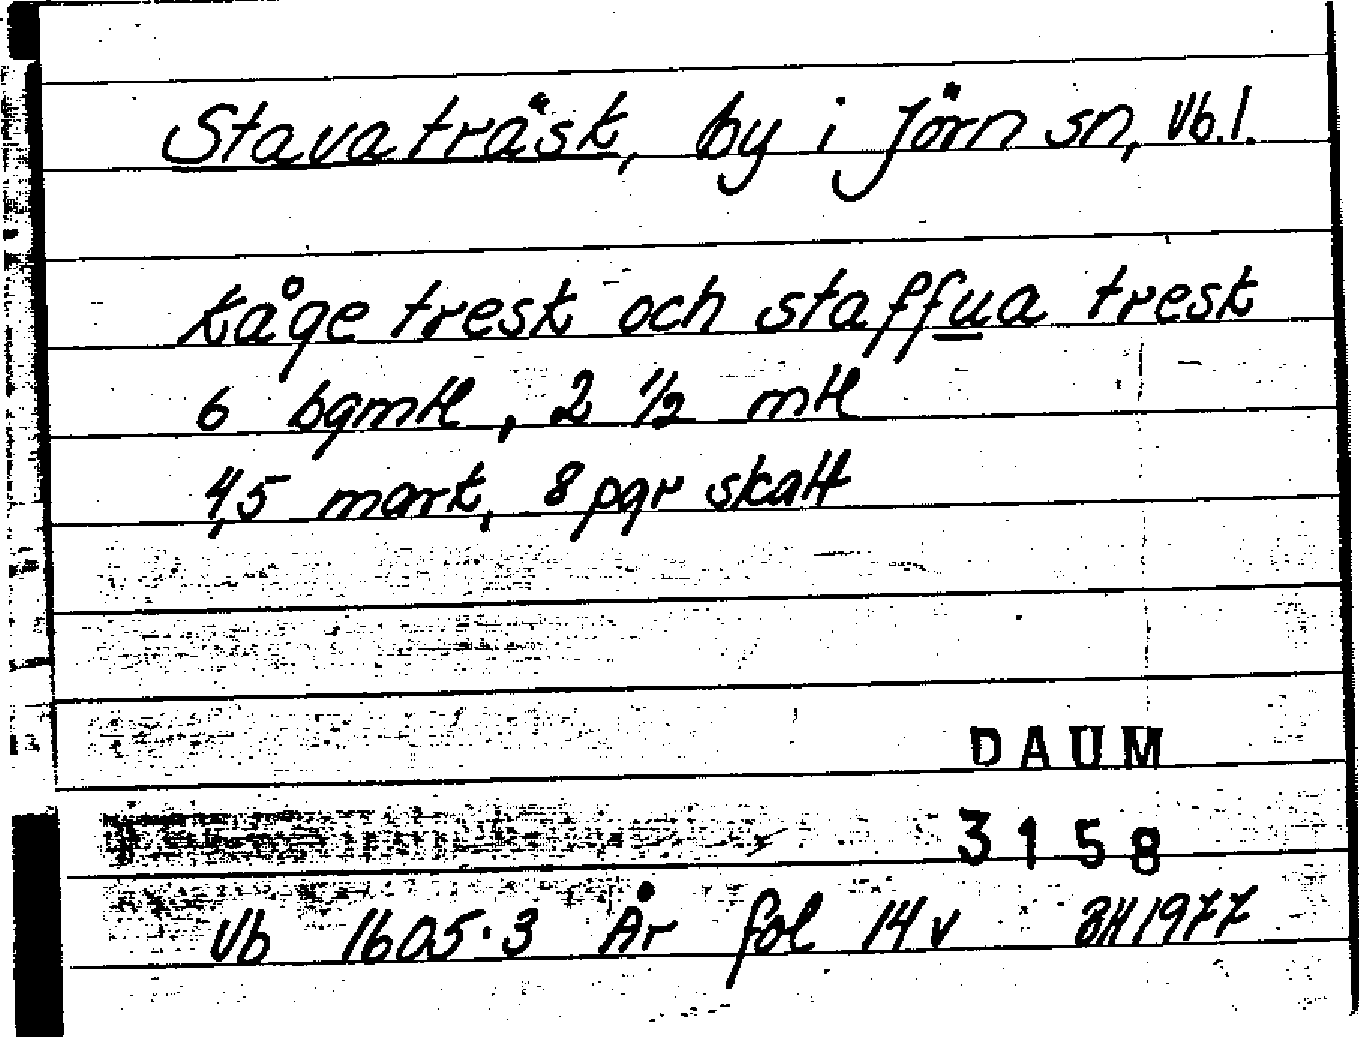 Stavaträsk, by i Jörn sn, Vb.l.
Kåge tresk och staffua tresk
6 bgmtl, 2 1/2 mtl
4,5 mark, 8 pgr skatt
DAUM
3158
Vb 1605:3 År fol 14v BH1977